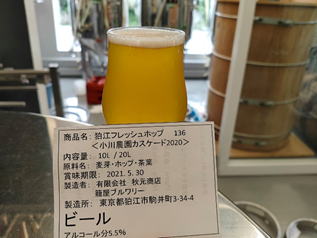 商品名: 狛江フレッシュホップ 136
＜小川農園カスケード2020＞
内容量: 10L / 20L
原料名: 麦芽・ホップ・茶葉
賞味期限: 2021. 5. 30
製造者: 有限会社 秋元商店
籠屋ブルワリー
製造所: 東京都狛江市駒井町3-34-4
ビール
アルコール分5.5%